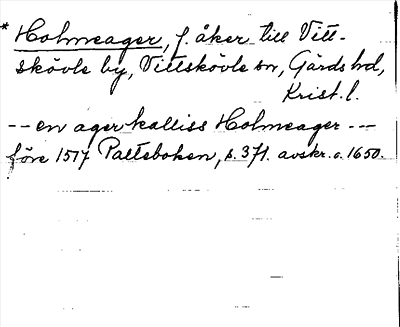 * Holmeager, f. åker till Vitt-
skövle by, Vittskövle sn, Gärds hd,
Krist. l.
-- en ager kalliss Holmeager ---
före 1517 Palteboken, s. 371. avskr. c. 1650.